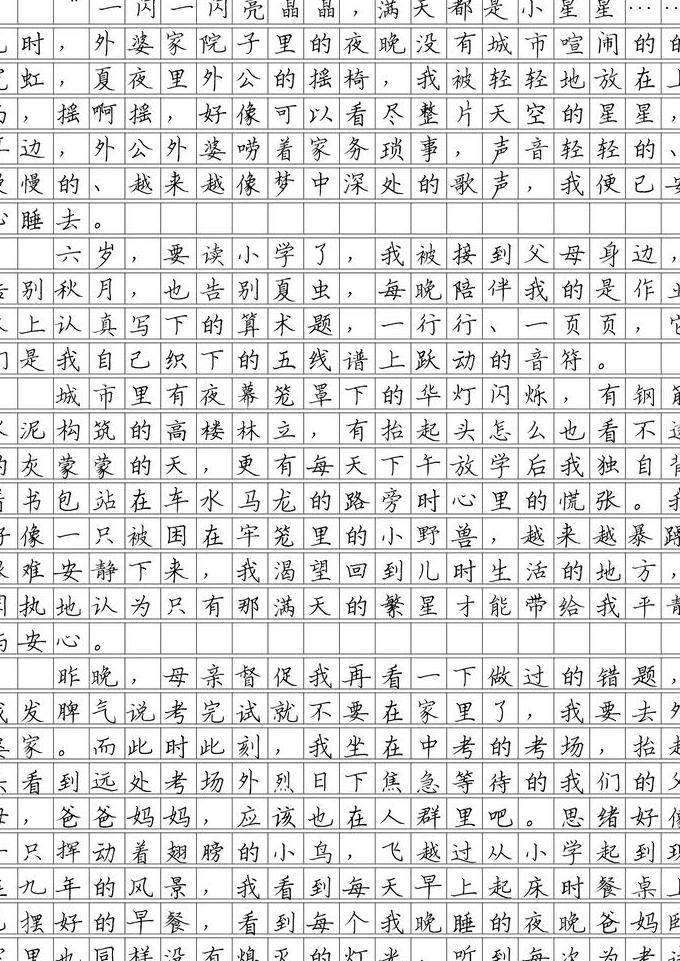 “一闪一闪亮晶晶，满天都是小星星……
时，外婆家院子里的夜晚没有城市喧闹的
虹，夏夜里外公的摇椅，我被轻轻地放在上
，摇啊摇，好像可以看尽整片天空的星星，
边，外公外婆唠着家务琐事，声音轻轻的、
慢的、越来越像梦中深处的歌声，我便已安
心睡去。
六岁，要读小学了，我被接到父母身边，
告别秋月，也告别夏虫，每晚陪伴我的是作业
上认真写下的算术题，一行行、一页页，它
们是我自己织下的五线谱上跃动的音符。
城市里有夜幕笼罩下的华灯闪烁，有钢筋
水泥构筑的高楼林立，有抬起头怎么也看不透
的灰蒙蒙的天，更有每天下午放学后我独自背
着书包站在车水马龙的路旁时心里的慌张。我
好像一只被困在牢笼里的小野兽，越来越暴躁
难安静下来，我渴望回到儿时生活的地方，
固执地认为只有那满天的繁星才能带给我平静
与安心。
昨晚，母亲督促我再看一下做过的错题，
我发脾气说考完试就不要在家里了，我要去外
婆家。而此时此刻，我坐在中考的考场，抬起
头看到远处考场外烈日下焦急等待的我们的父
母，爸爸妈妈，应该也在人群里吧。思绪好像
一只挥动着翅膀的小鸟，飞越过从小学起到现
在九年的风景，我看到每天早上起床时餐桌上
摆好的早餐，看到每个我晚睡的夜晚爸妈卧
室里也同样没有熄灭的灯光，听到每次为考试